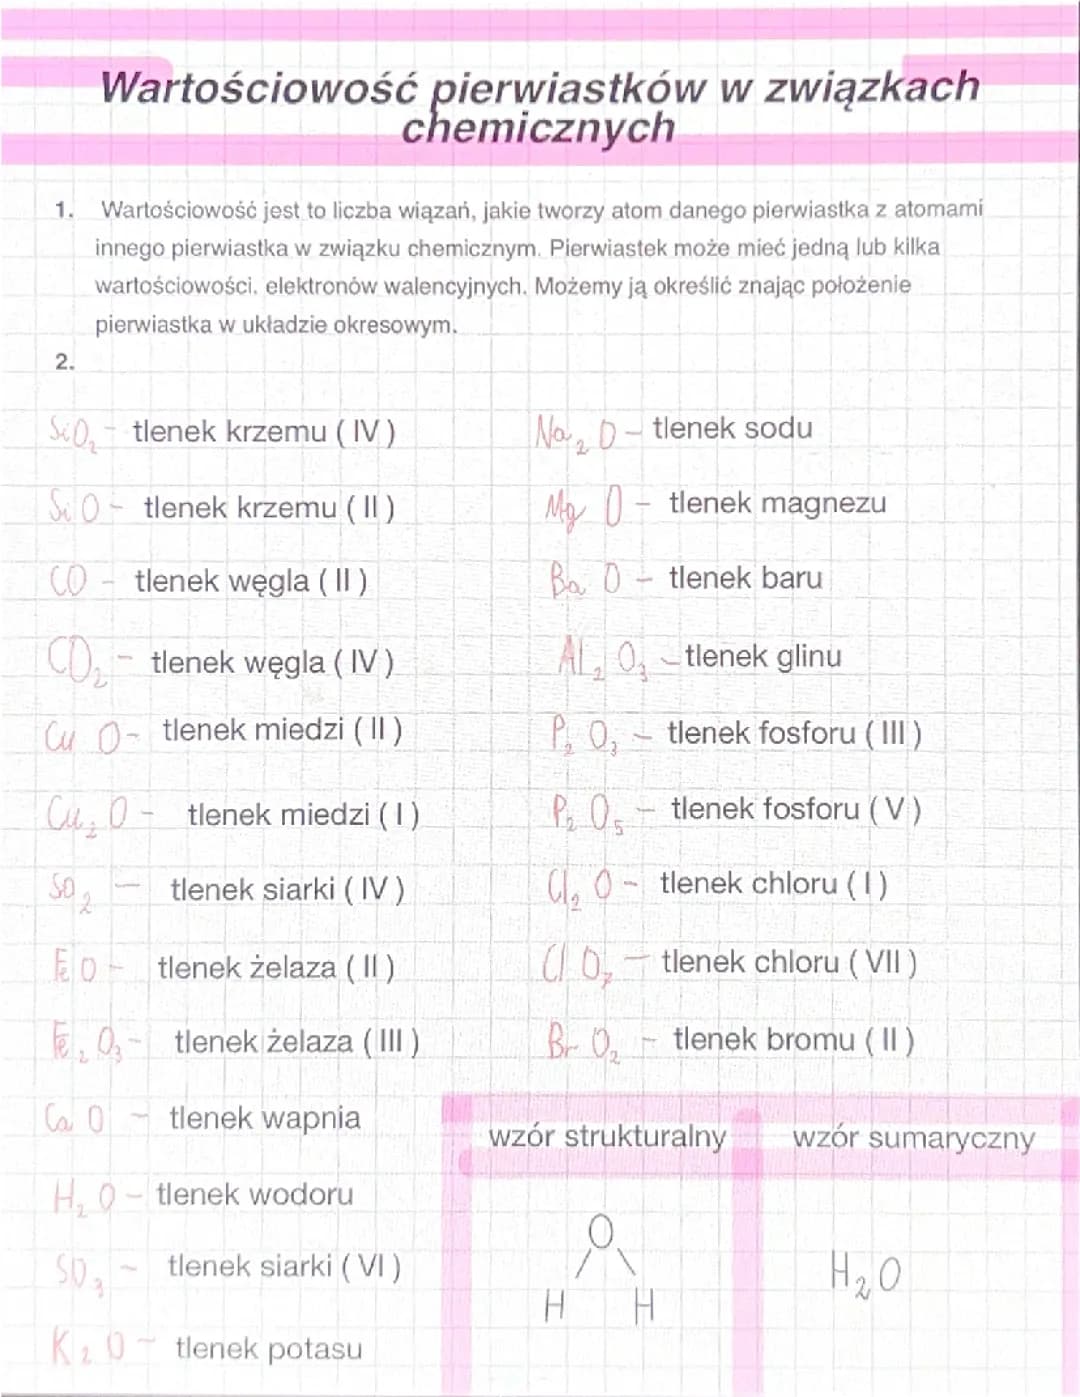 Wartościowość pierwiastków w związkach
chemicznych
1. Wartościowość jest to liczba wiązań, jakie tworzy atom danego pierwiastka z atomami
innego pierwiastka w związku chemicznym. Pierwiastek może mieć jedną lub kilka
wartościowości. elektronów walencyjnych. Możemy ją określić znając położenie
pierwiastka w układzie okresowym.
2.
SiO₂ - tlenek krzemu ( IV )
SiO - tlenek krzemu ( II )
CO - tlenek węgla ( II )
CO₂ - tlenek węgla ( IV )
Cu O - tlenek miedzi ( II )
Cu₂ O - tlenek miedzi ( I )
SO₂ - tlenek siarki ( IV )
Fe O - tlenek żelaza ( II )
Fe₂ O₃ - tlenek żelaza ( III )
Ca O - tlenek wapnia
H₂ O - tlenek wodoru
SO₃ - tlenek siarki ( VI )
K₂ O - tlenek potasu
Na₂ O - tlenek sodu
Mg O - tlenek magnezu
Ba O - tlenek baru
Al₂ O₃ - tlenek glinu
P₂ O₃ - tlenek fosforu ( III )
P₂ O₅ - tlenek fosforu ( V )
Cl₂ O - tlenek chloru ( I )
Cl O₇ - tlenek chloru ( VII )
Br O₂ - tlenek bromu ( II )
wzór strukturalny wzór sumaryczny
O
H H
H₂O